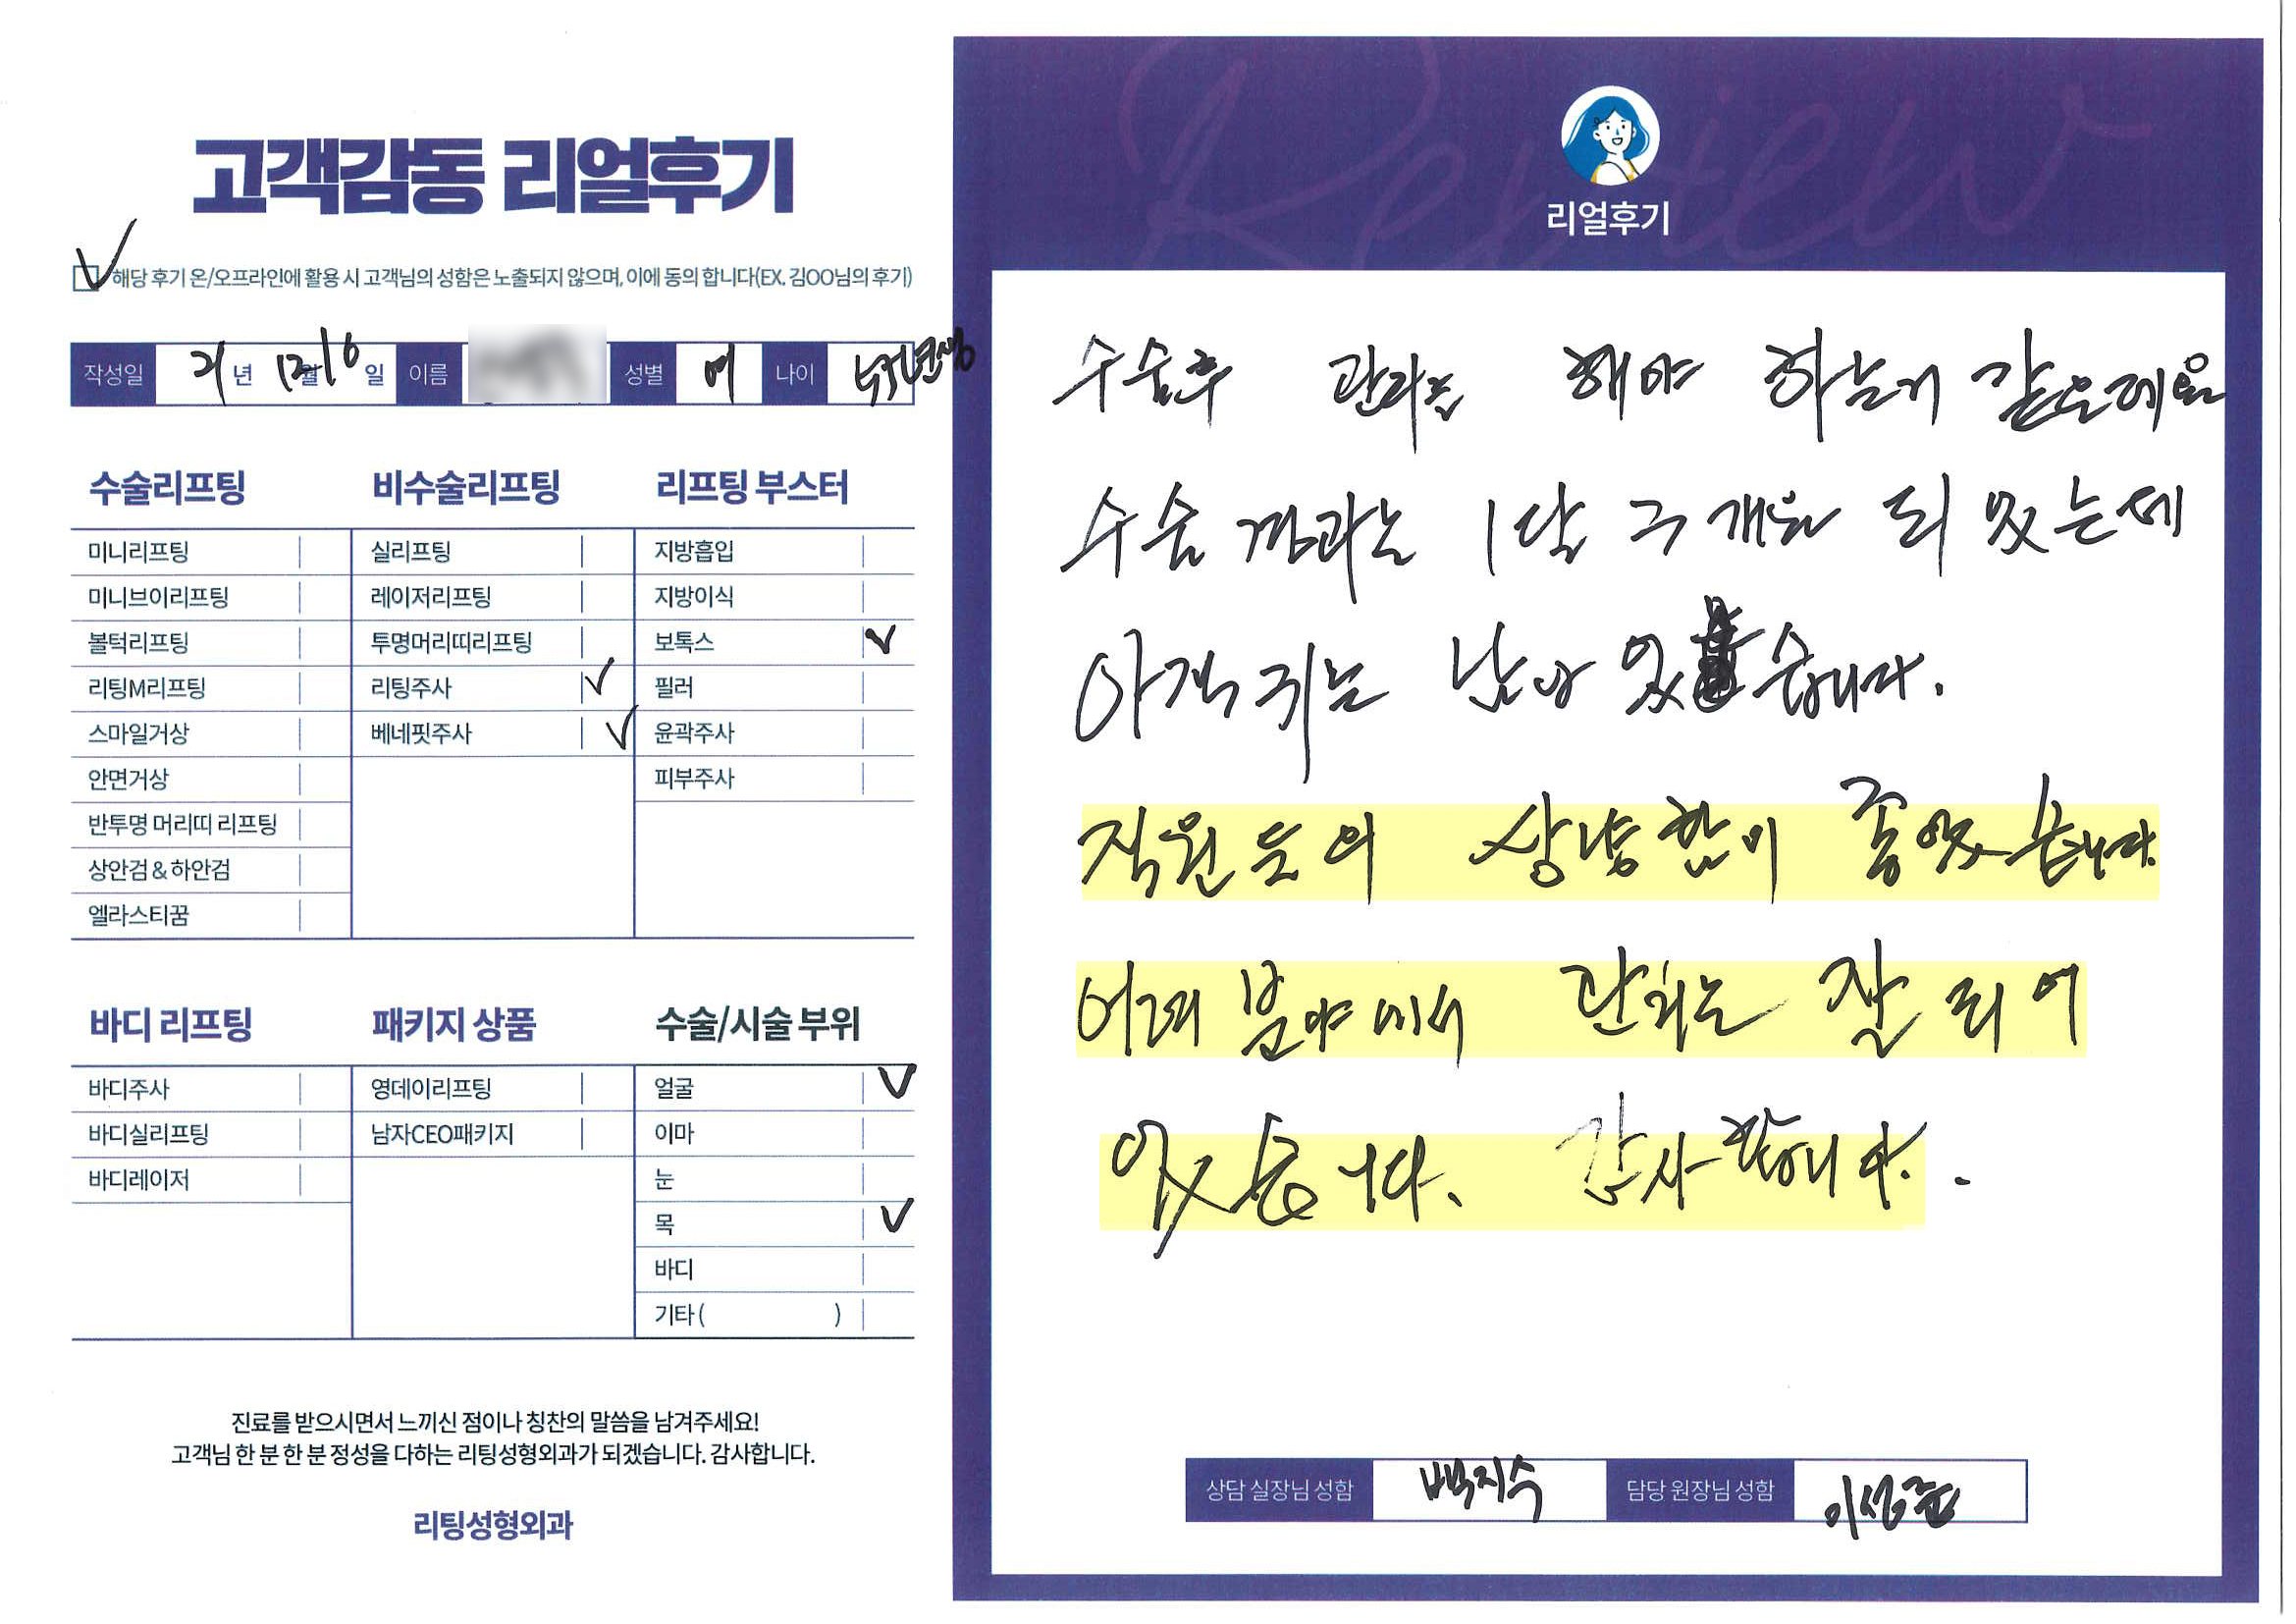 고객감동 리얼후기
해당 후기 온/오프라인에 활용 시 고객님의 성함은 노출되지 않으며, 이에 동의 합니다(EX. 김OO님의 후기)
작성일 21년 12월 16일 이름 성별 여 나이
수술리프팅
미니리프팅
미니브이리프팅
볼턱리프팅
리팅M리프팅
스마일거상
안면거상
반투명 머리띠 리프팅
상안검 & 하안검
엘라스티꿈
비수술리프팅
실리프팅
레이저리프팅
투명머리띠리프팅
리팅주사
베네핏주사
리프팅 부스터
지방흡입
지방이식
보톡스
필러
윤곽주사
피부주사
바디 리프팅
바디주사
바디실리프팅
바디레이저
패키지 상품
영데이리프팅
남자CEO패키지
수술/시술 부위
얼굴
이마
눈
목
바디
기타 ( )
진료를 받으시면서 느끼신 점이나 칭찬의 말씀을 남겨주세요!
고객님 한 분 한 분 정성을 다하는 리팅성형외과가 되겠습니다. 감사합니다.
리팅성형외과
Review
리얼후기
수술후 관리는 해야 하는게 같은데요
수술 결과는 1달 구개월 되 었는데
아직 귀는 남아 있습니다.
직원들의 상냥함이 좋았습니다
여러 분야에서 관리는 잘 되어
있습니다. 감사합니다.
상담 실장님 성함 백지수 담당 원장님 성함